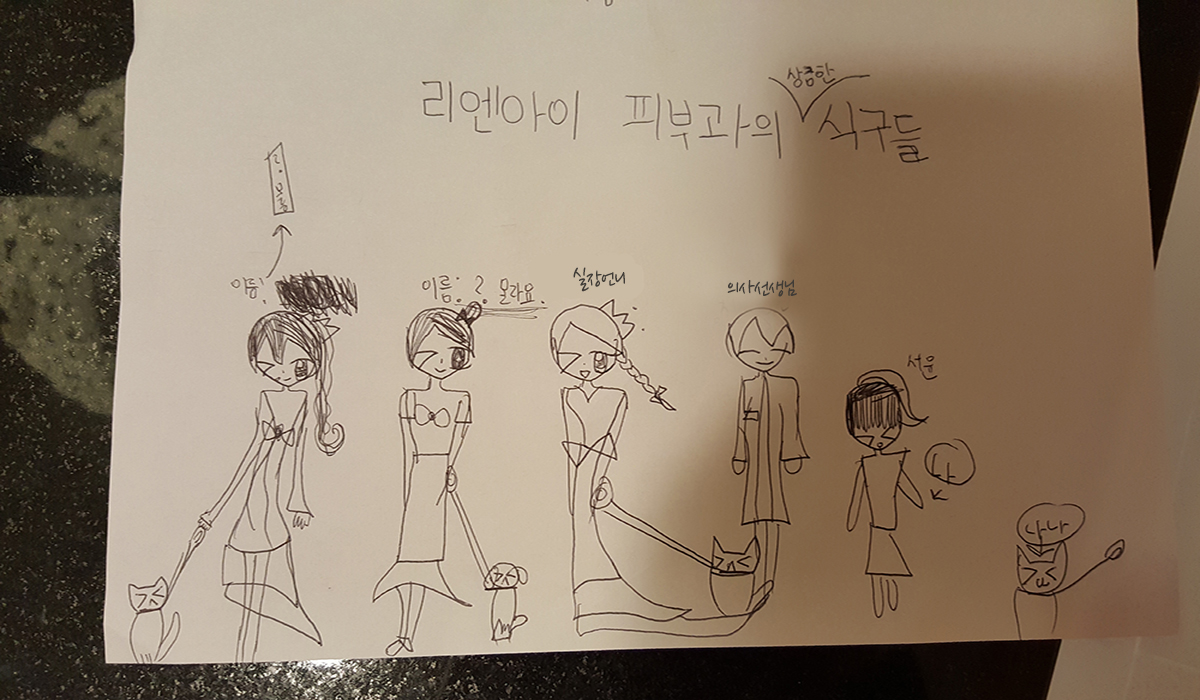 상큼한
리엔아이 피부과의 식구들
이름:
이름: ? 몰라요.
실장언니
의사선생님
서윤
나
나나